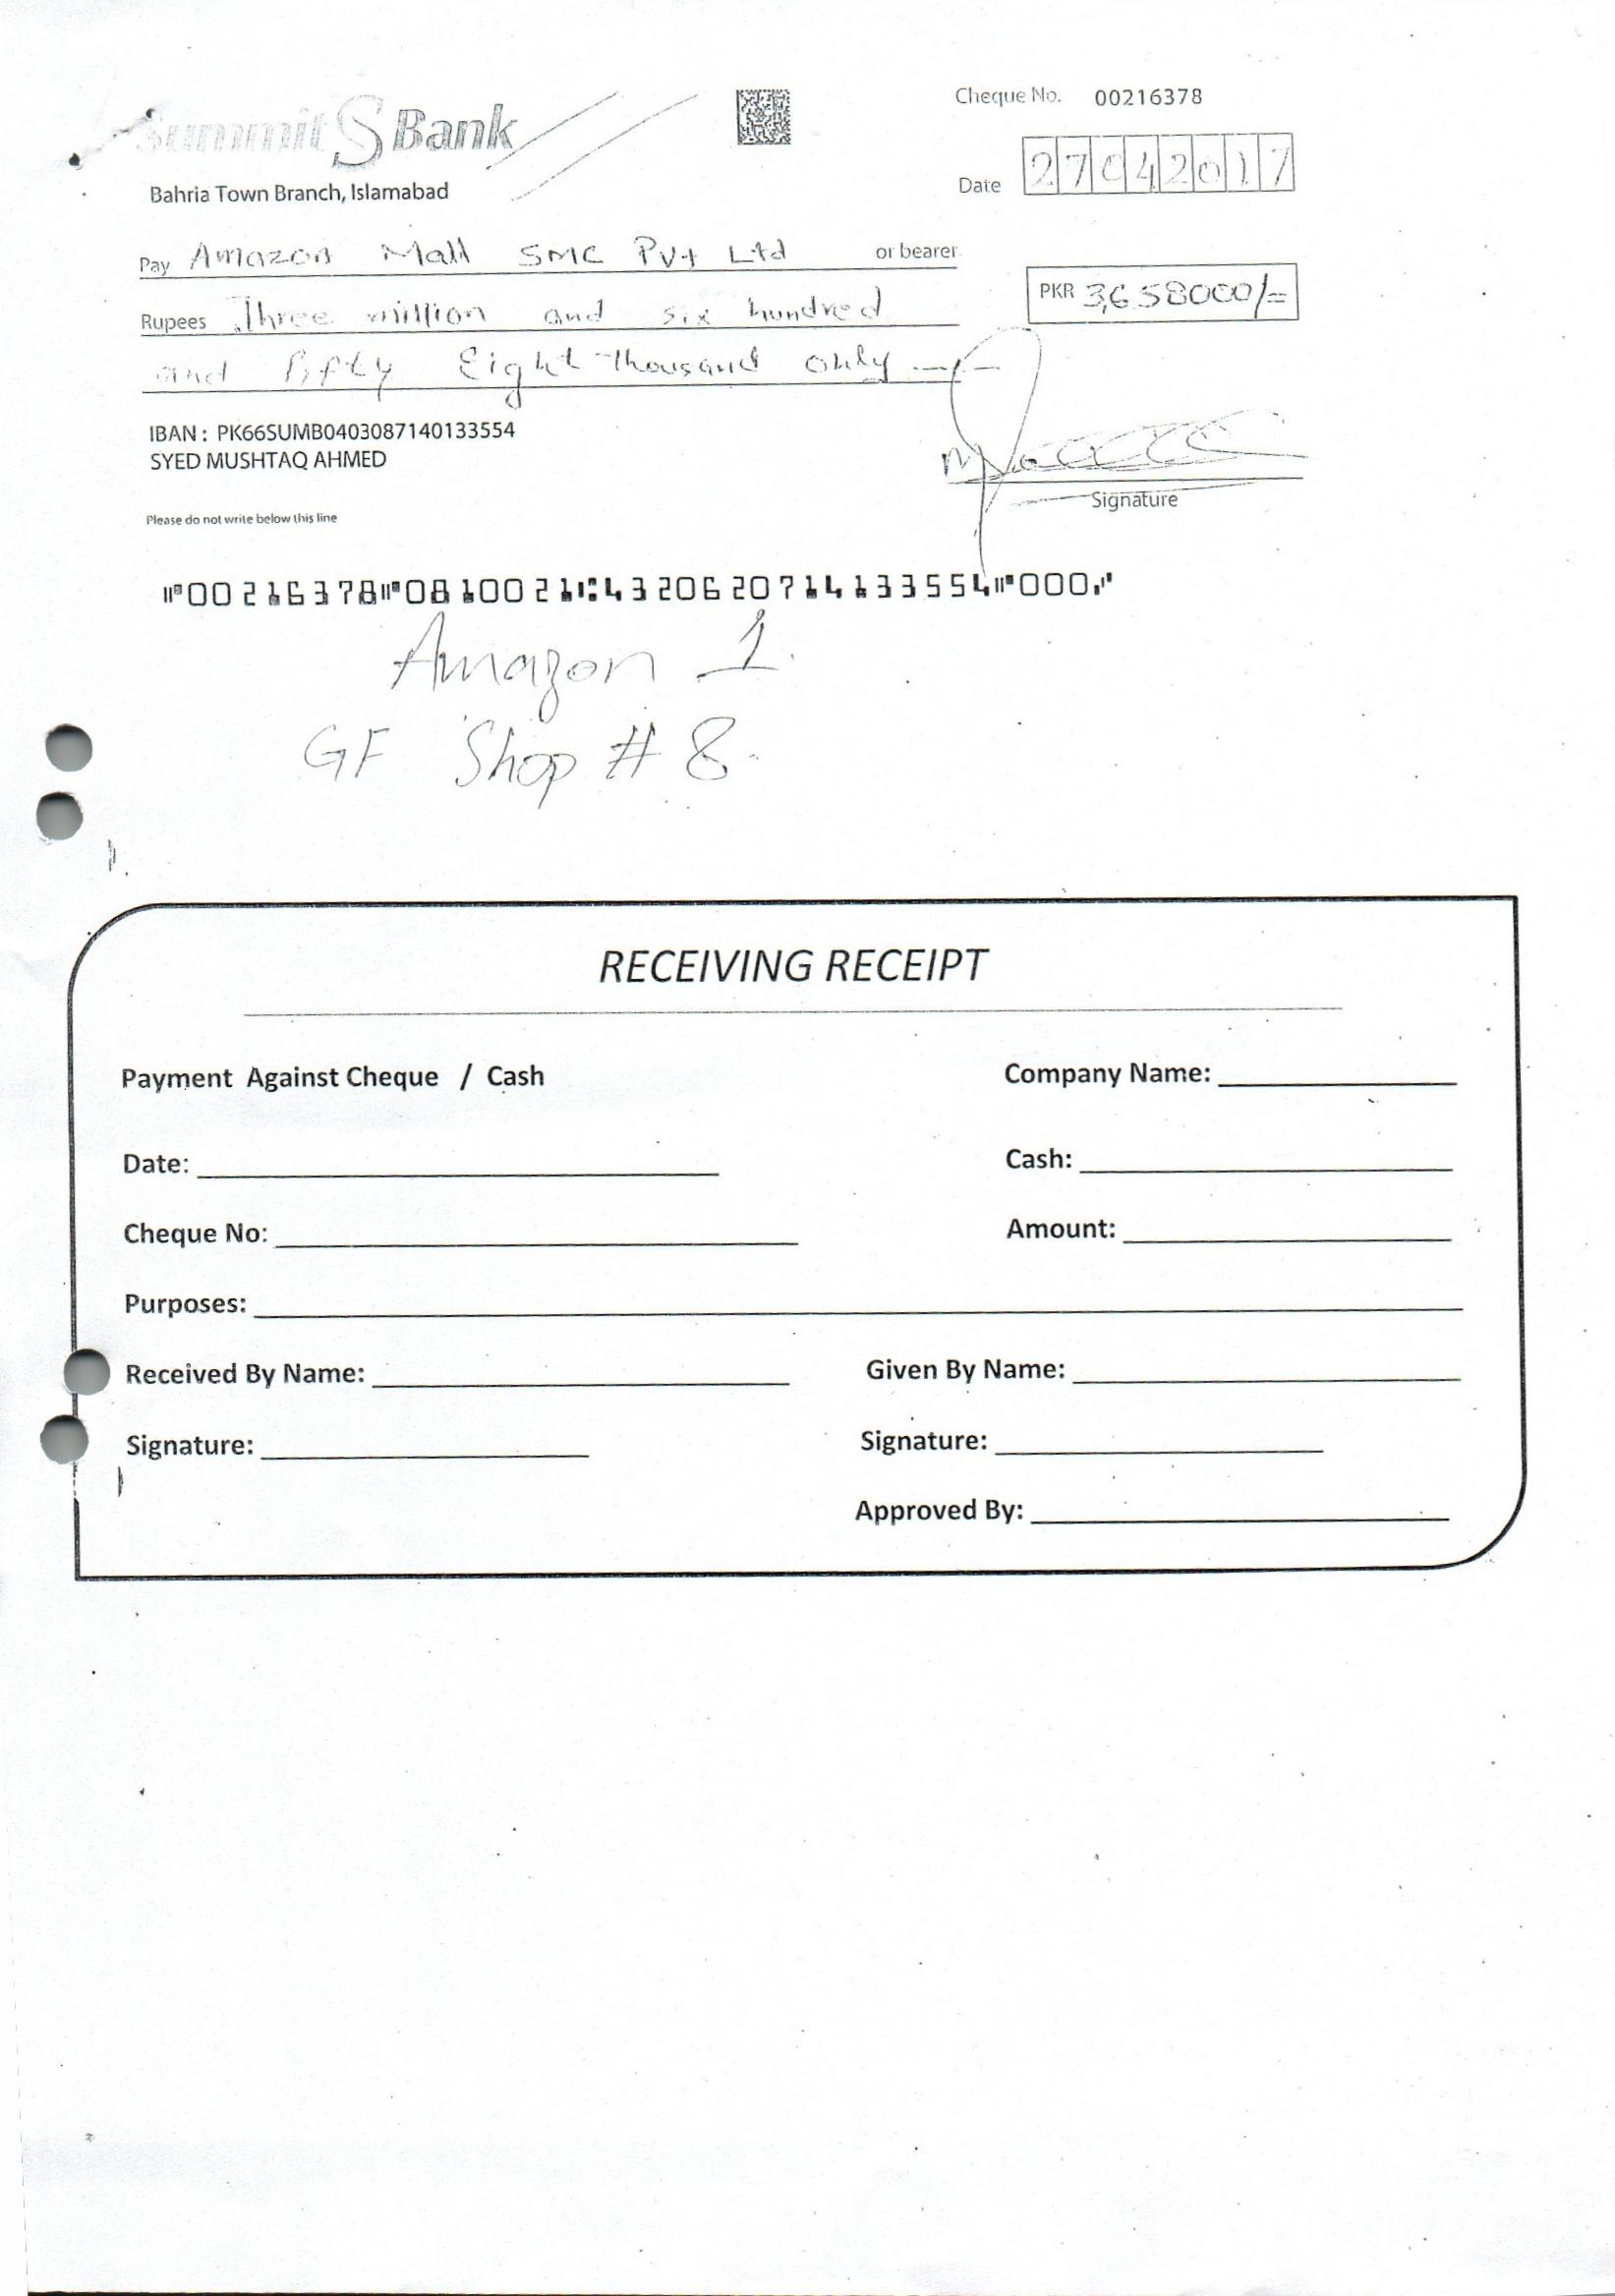 Summit S Bank
Cheque No. 00216378
Bahria Town Branch, Islamabad
Date 27042017
Pay Amazon Mall SMC Pvt Ltd or bearer
Rupees Three million and six hundred
PKR 3,658000/=
and fifty Eight thousand only
IBAN : PK66SUMB0403087140133554
SYED MUSHTAQ AHMED
Signature
Please do not write below this line
⑈00216378⑈0810021⑆4320620714133554⑈000⑈
Amazon 1.
GF Shop # 8.
RECEIVING RECEIPT
Payment Against Cheque / Cash Company Name:
Date: Cash:
Cheque No: Amount:
Purposes:
Received By Name: Given By Name:
Signature: Signature:
Approved By: